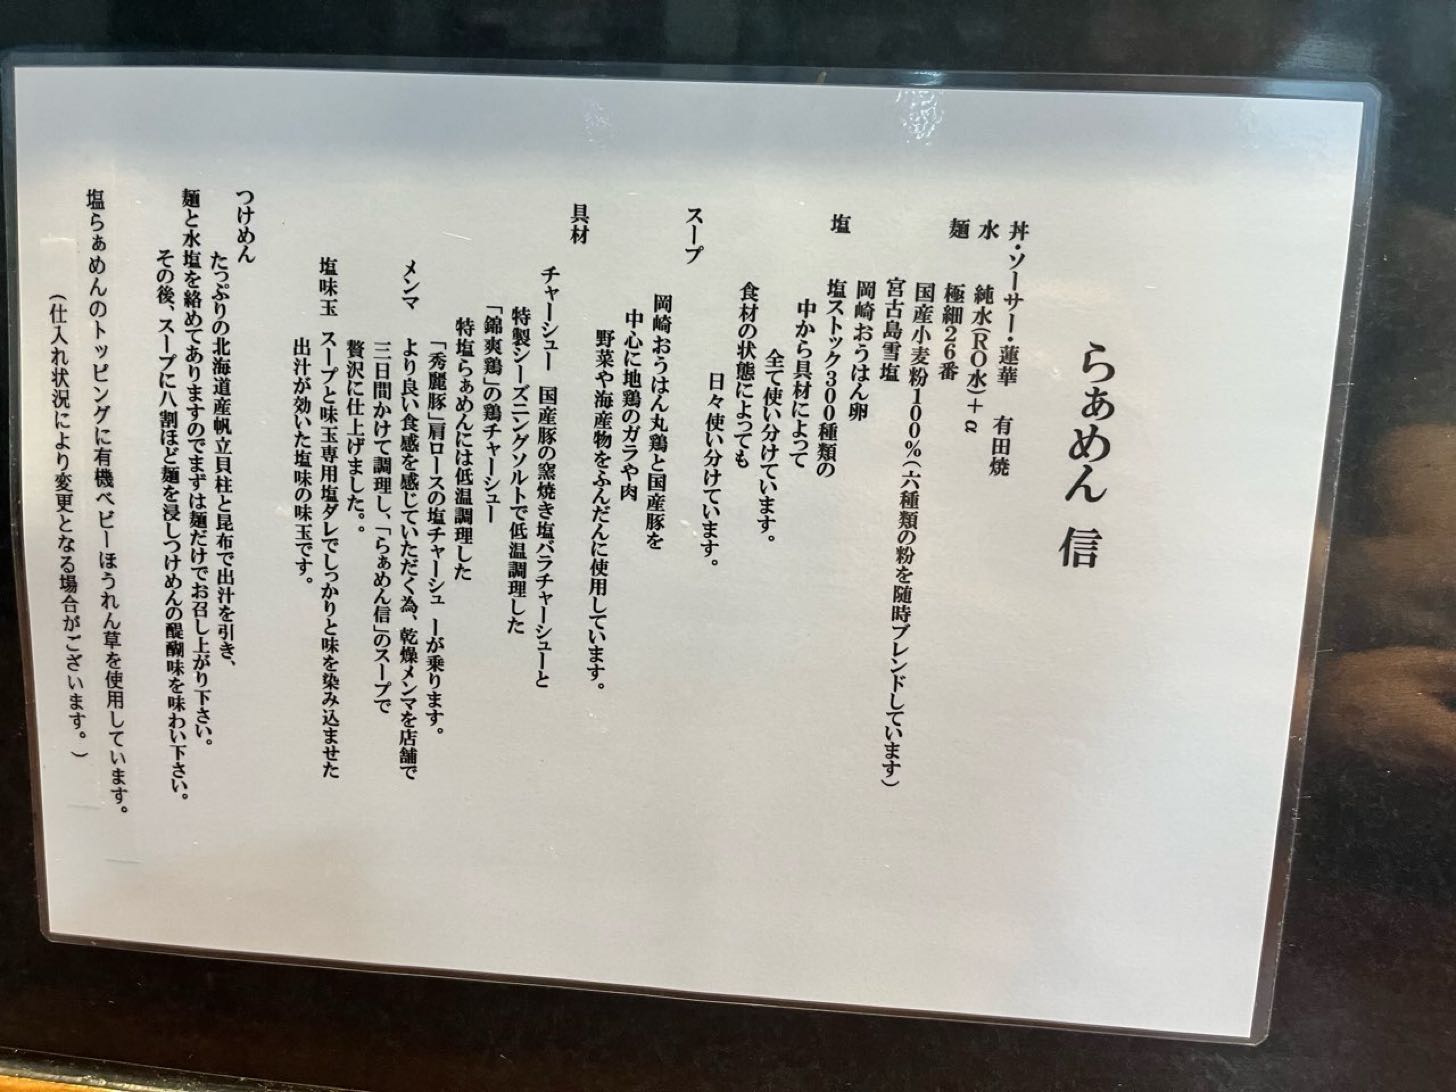 らぁめん 信
丼・ソーサー・蓮華 有田焼
水 純水(RO水)+α
麺 極細26番
国産小麦粉100%(六種類の粉を随時ブレンドしています)
宮古島雪塩
岡崎おうはん卵
塩 塩ストック300種類の
中から具材によって
全て使い分けています。
食材の状態によっても
日々使い分けています。
スープ
岡崎おうはん丸鶏と国産豚を
中心に地鶏のガラや肉
野菜や海産物をふんだんに使用しています。
具材
チャーシュー 国産豚の窯焼き塩バラチャーシューと
特製シーズニングソルトで低温調理した
「錦爽鶏」の鶏チャーシュー
特塩らぁめんには低温調理した
「秀麗豚」肩ロースの塩チャーシューが乗ります。
メンマ より良い食感を感じていただく為、乾燥メンマを店舗で
三日間かけて調理し、「らぁめん信」のスープで
贅沢に仕上げました。。
塩味玉 スープと味玉専用塩ダレでしっかりと味を染み込ませた
出汁が効いた塩味の味玉です。
つけめん
たっぷりの北海道産帆立貝柱と昆布で出汁を引き、
麺と水塩を絡めてありますのでまずは麺だけでお召し上がり下さい。
その後、スープに八割ほど麺を浸しつけめんの醍醐味を味わい下さい。
塩らぁめんのトッピングに有機ベビーほうれん草を使用しています。
(仕入れ状況により変更となる場合がございます。)